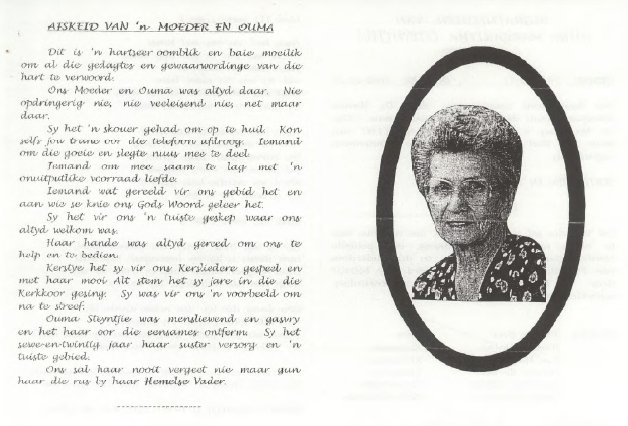 AFSKEID VAN 'n MOEDER EN OUMA
Dit is 'n hartseer oomblik en baie moeilik
om al die gedagtes en gewaarwordinge van die
hart te verwoord.
Ons Moeder en Ouma was altyd daar. Nie
opdringerig nie, nie veeleisend nie, net maar
daar.
Sy het 'n skouer gehad om op te huil. Kon
selfs jou trane oor die telefoon afdroog. Iemand
om die goeie en slegte nuus mee te deel.
Iemand om mee saam te lag met 'n
onuitputlike voorraad liefde.
Iemand wat gereeld vir ons gebid het en
aan wie se knie ons Gods Woord geleer het.
Sy het vir ons 'n tuiste geskep waar ons
altyd welkom was.
Haar hande was altyd gereed om ons te
help en te bedien.
Kerstye het sy vir ons Kersliedere gespeel en
met haar mooi Alt stem het sy jare in die die
Kerkkoor gesing. Sy was vir ons 'n voorbeeld om
na te streef.
Ouma Steyntjie was mensliewend en gasvry
en het haar oor die eensames ontferm. Sy het
sewe-en-twintig jaar haar suster versorg en 'n
tuiste gebied.
Ons sal haar nooit vergeet nie maar gun
haar die rus by haar Hemelse Vader.